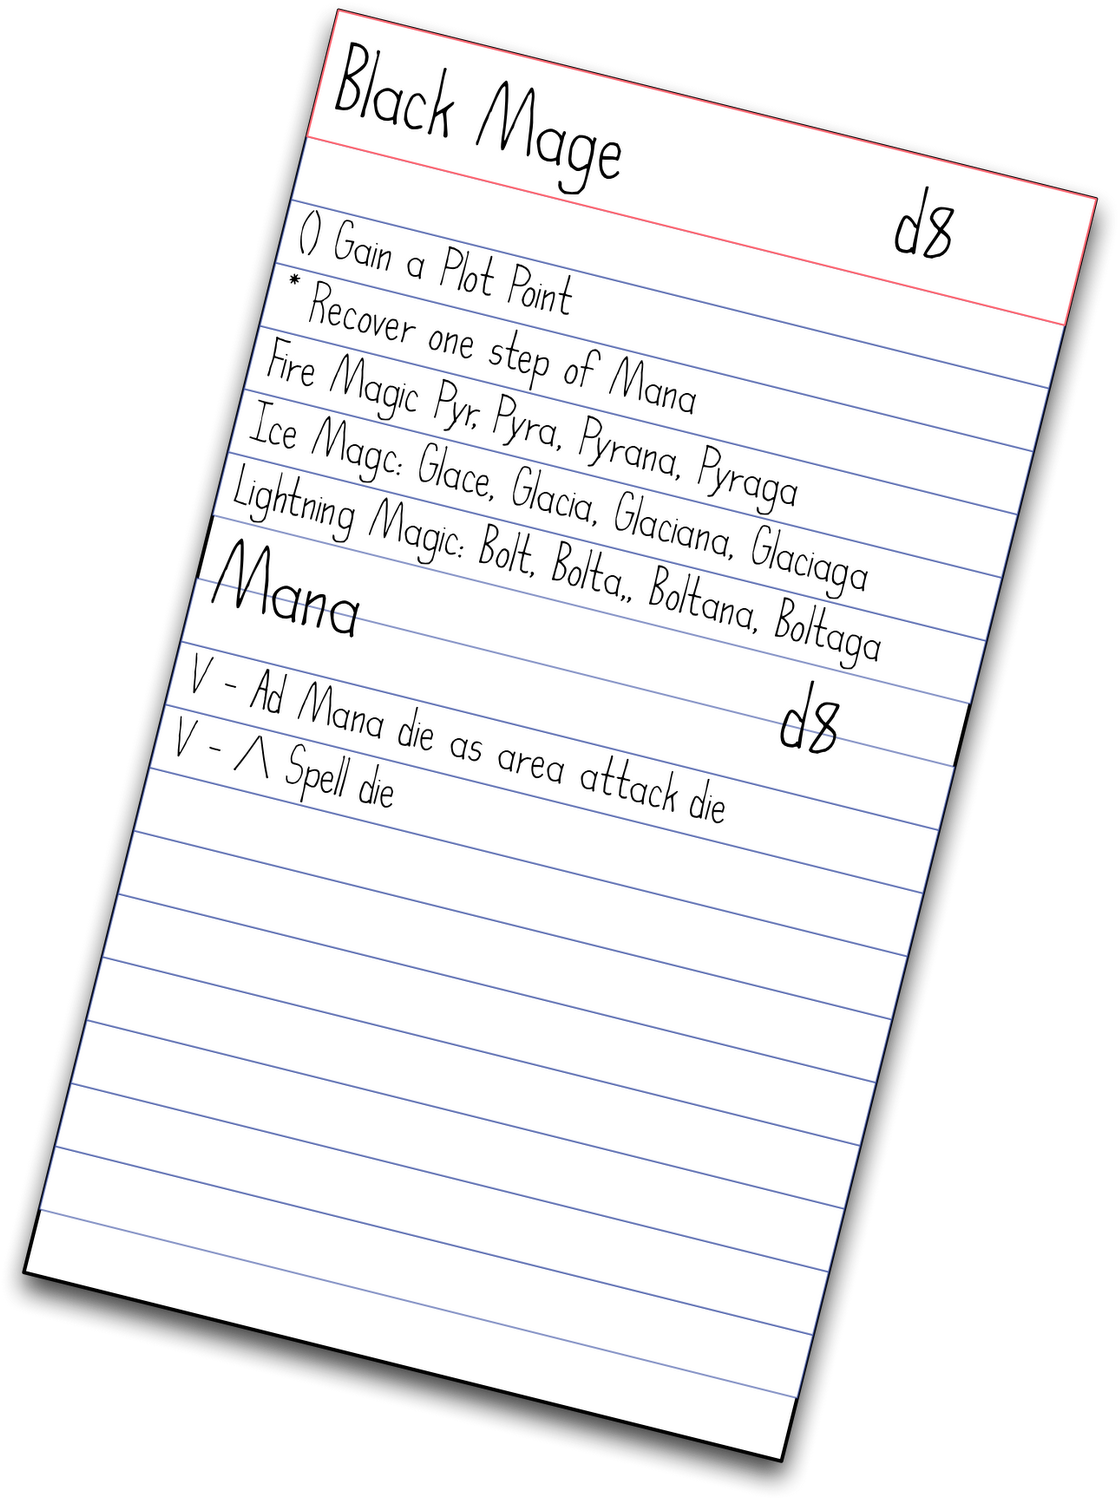 Black Mage
d8
() Gain a Plot Point
* Recover one step of Mana
Fire Magic Pyr, Pyra, Pyrana, Pyraga
Ice Magc: Glace, Glacia, Glaciana, Glaciaga
Lightning Magic: Bolt, Bolta,, Boltana, Boltaga
Mana
d8
V - Ad Mana die as area attack die
V - Λ Spell die